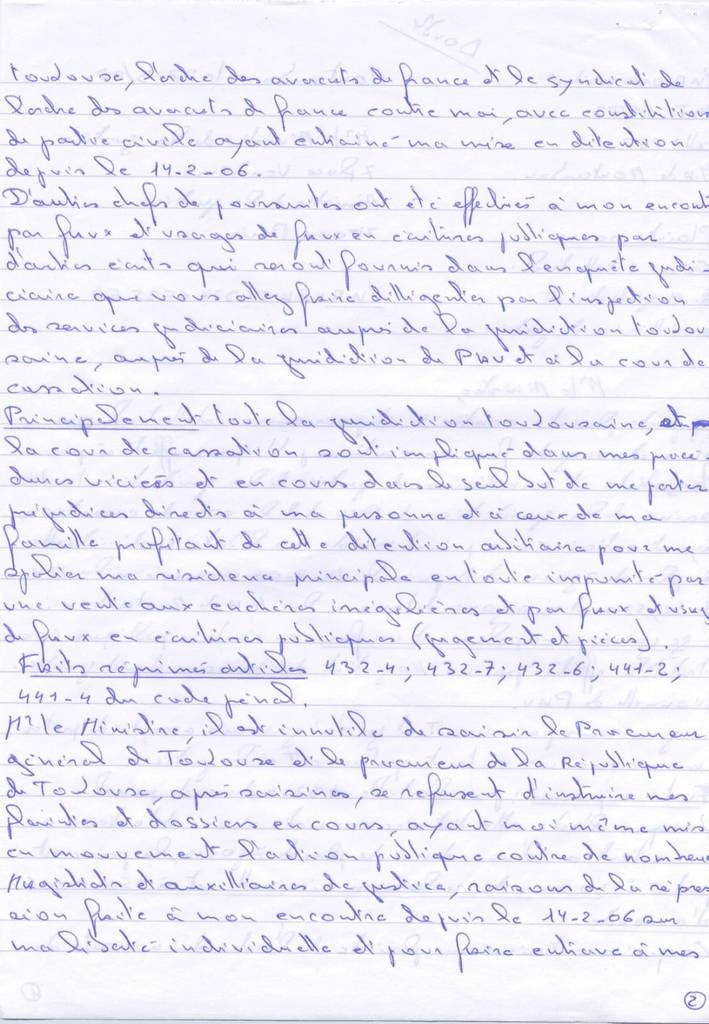 toulouse, l'ordre des avocats de france et le syndicat de
l'ordre des avocats de france contre moi, avec constitution
de partie civile ayant entrainé ma mise en détention
depuis le 14-2-06.
D'autres chefs de poursuites ont été effectués à mon encont
par faux et usages de faux en écritures publiques par
d'autres écrits qui seront fournis dans l'enquête judi-
ciaire que vous allez faire dilligenter par l'inspection
des services judiciaires auprès de la juridiction toulou
saine, auprès de la juridiction de PAU et à la cour de
cassation.
Principalement toute la juridiction toulousaine, et
la cour de cassation sont impliqué dans mes procé
dures viciées et en cours dans le seul but de me porter
préjudices directs à ma personne et à ceux de ma
famille profitant de cette détention arbitraire pour me
spolier ma résidence principale en toute impunité par
une vente aux enchères irrégulières et par faux et usag
de faux en écritures publiques (jugement et pièces).
Faits réprimés articles 432-4; 432-7; 432-6; 441-2;
441-4 du code pénal.
Mr le Ministre, il est innutile de saisir le Procureur
général de Toulouse et le procureur de la République
de Toulouse, après saisines, se refusent d'instruire mes
plaintes et dossiers en cours, ayant moi même mis
en mouvement l'action publique contre de nombreux
Magistrats et auxilliaires de justice, raisons de la répres
sion faite à mon encontre depuis le 14-2-06 sur
ma liberté individuelle et pour faire entrave à mes
2